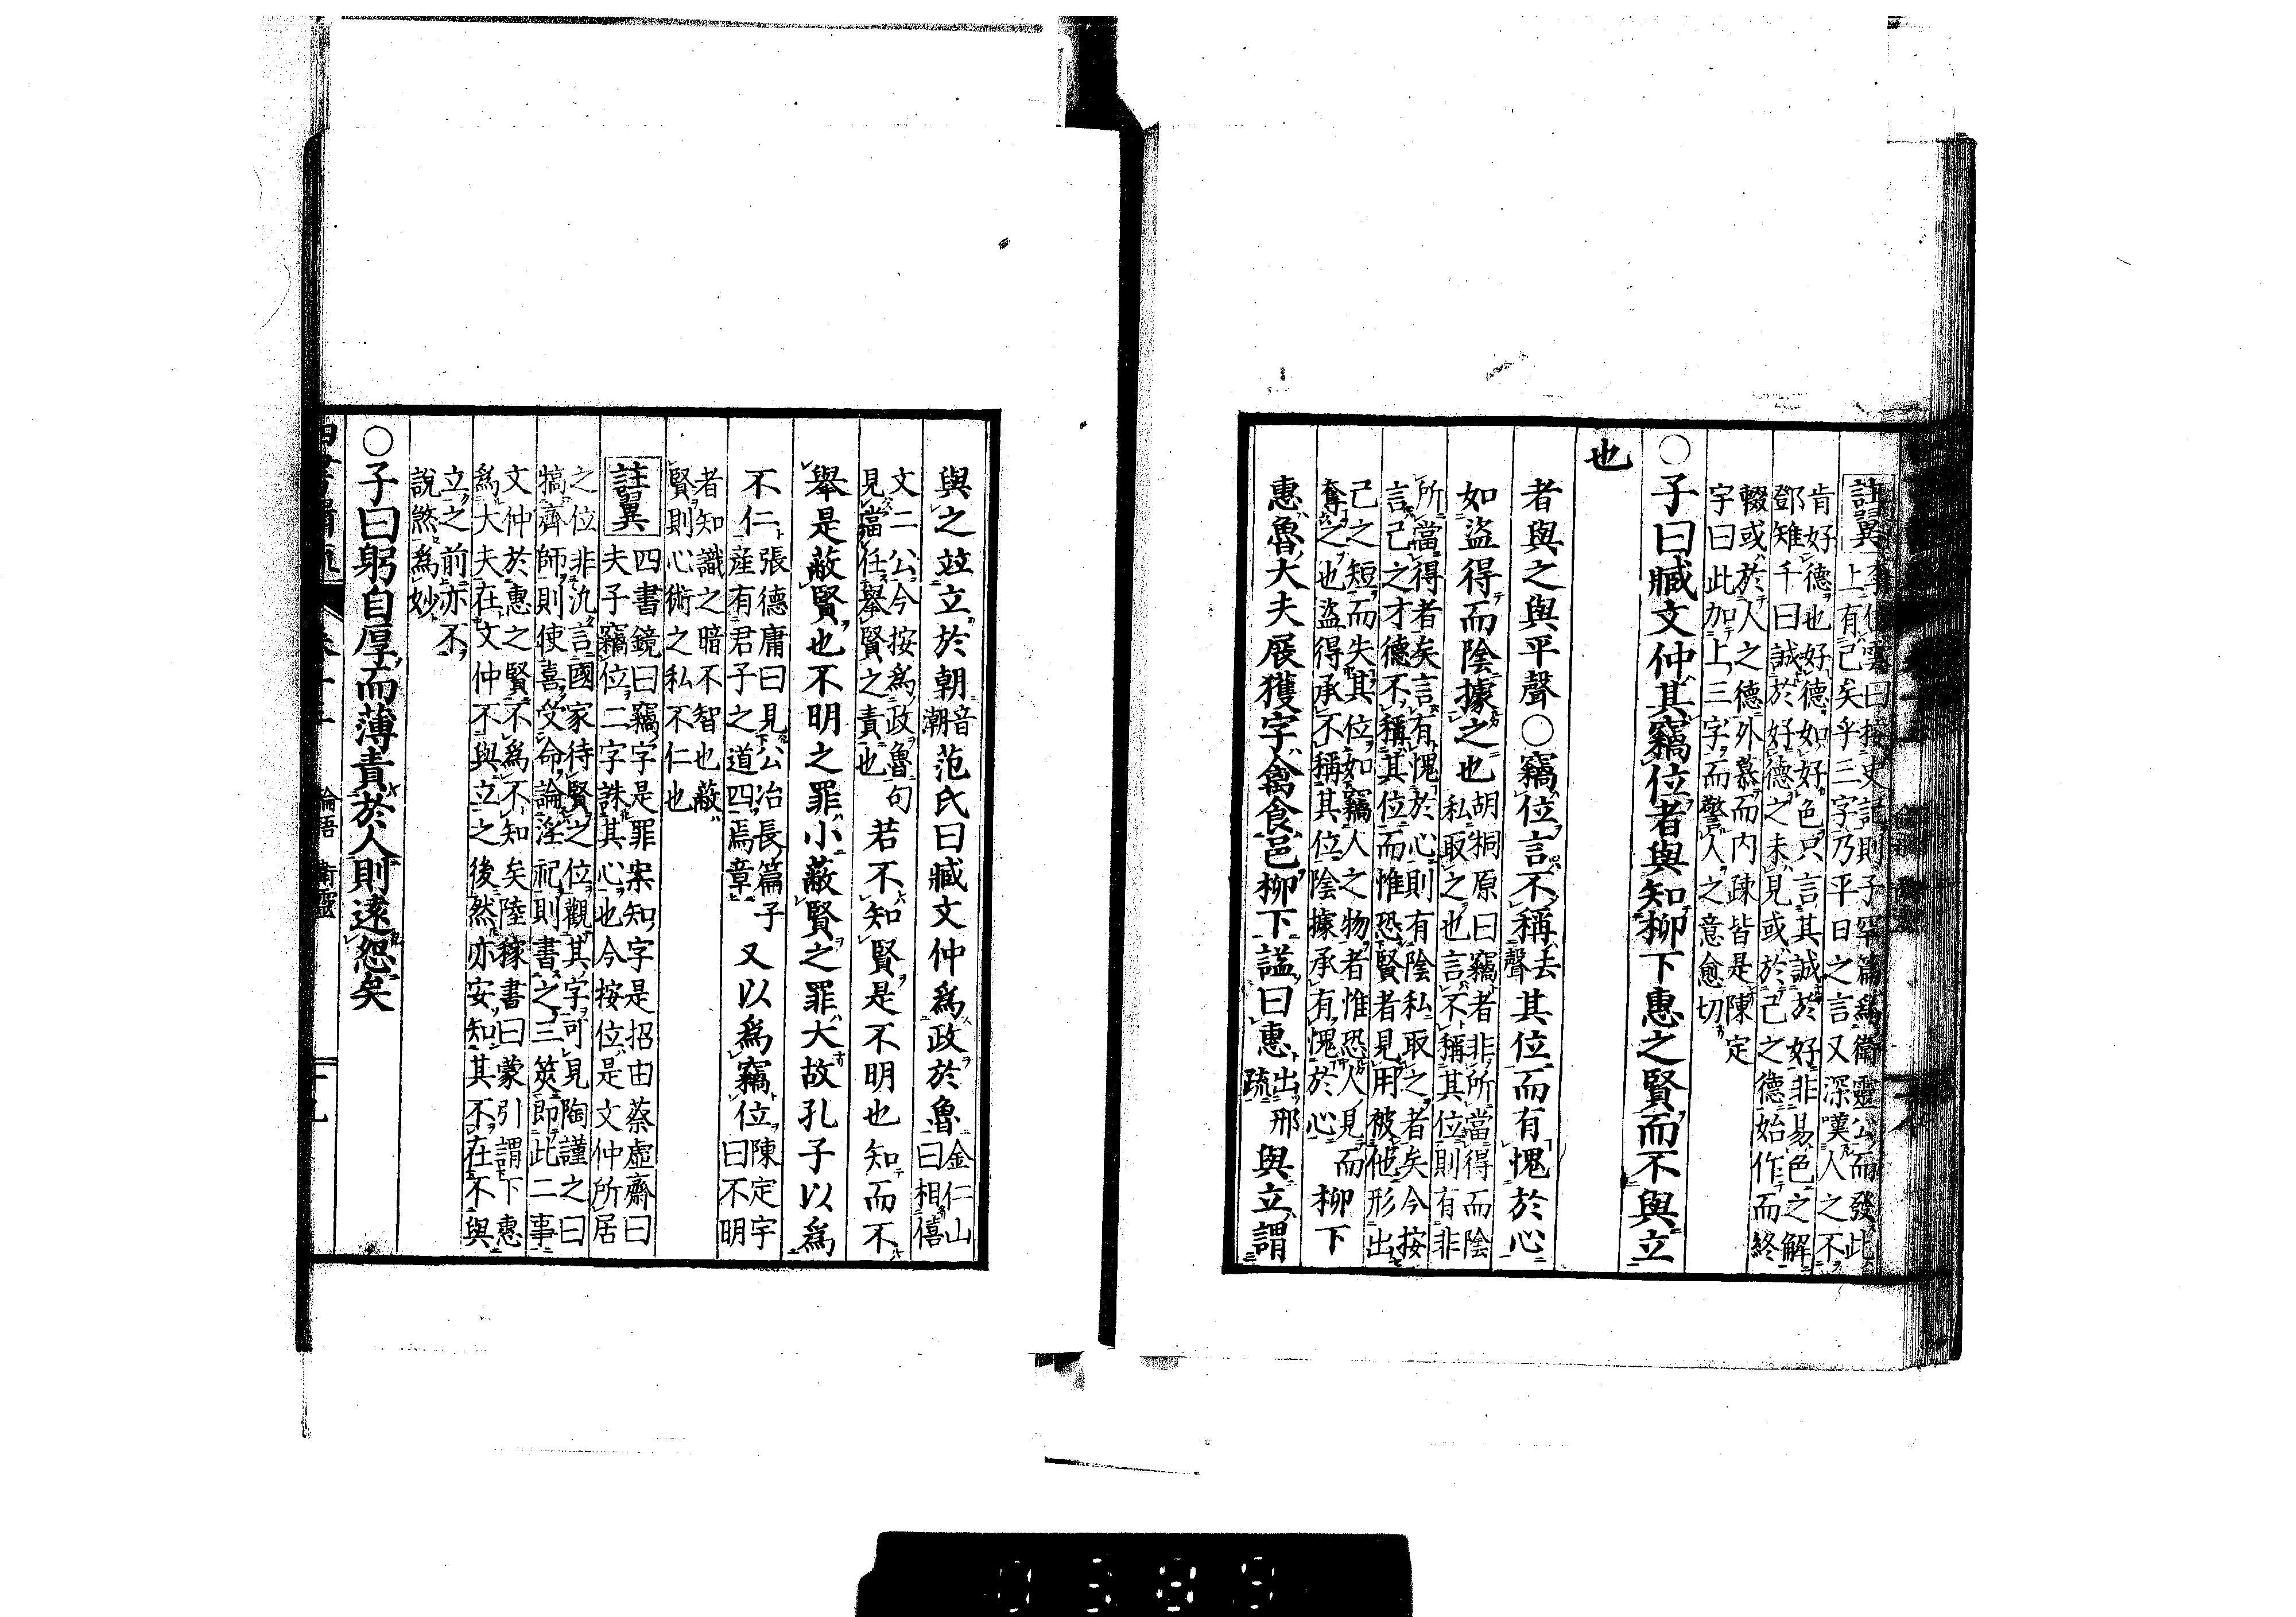 註翼 李 曰按史記則子罕篇爲衛靈公而發此
上有己矣乎三字乃平日之言又深嘆人之不
肯好德也好德如好色只言其誠於好非易色之解
鄧知千曰誠於好德之未見或於己之德始作而終
輟或於人之德外慕而内疎皆是陳定
宇曰此加上三字而警人之意愈切
○子曰臧文仲其竊位者與知柳下惠之賢而不與立
也
者與之與平聲○竊位言不稱去聲其位而有愧於心
如盜得而陰據之也胡桐原曰竊者非所當得而陰
私取之也言不稱其位則有非
所當得者矣言有愧於心則有陰私取之者矣今按
言己之才德不稱其位而惟恐賢者見用被他形出
己之短而失其位如竊人之物者惟恐人見而
奪之也盜得承不稱其位陰據承有愧於心
柳下
惠魯大夫展獲字禽食邑柳下謚曰惠出邢疏與立謂
與之竝立於朝音潮范氏曰臧文仲爲政於魯金仁山
曰相僖
文二公今按爲政魯句
見當任擧賢之責也
若不知賢是不明也知而不
擧是蔽賢也不明之罪小蔽賢之罪大故孔子以爲
不仁張德庸曰見公冶長篇子
產有君子之道四焉章
又以爲竊位陳定宇
曰不明
者知識之暗不智也蔽
賢則心術之私不仁也
註翼 四書鏡曰竊字是罪案知字是招由蔡虛齋曰
夫子竊位二字誅其心也今按位是文仲所居
之位非氿言國家待賢之位觀其字可見陶謹之曰
犒齊師則使喜受命論淫祀則書之三筴即此二事
文仲於惠之賢不爲不知矣陸稼書曰蒙引謂下惠
爲大夫在文仲不與立之後然亦安知其不在不與
立之前亦不
說煞爲妙
○子曰躬自厚而薄責於人則遠怨矣
論語 衛靈 十九